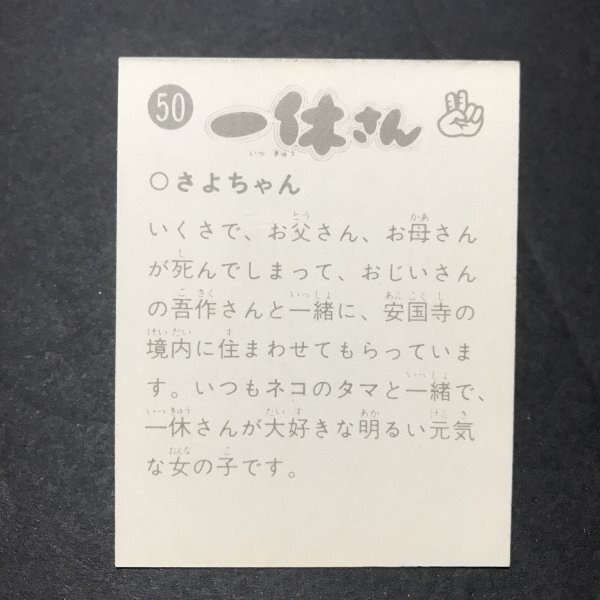 50
一休さん
いっ きゅう
○さよちゃん
いくさで、お父さん、お母さん
が死んでしまって、おじいさん
の吾作さんと一緒に、安国寺の
境内に住まわせてもらっていま
す。いつもネコのタマと一緒で、
一休さんが大好きな明るい元気
な女の子です。